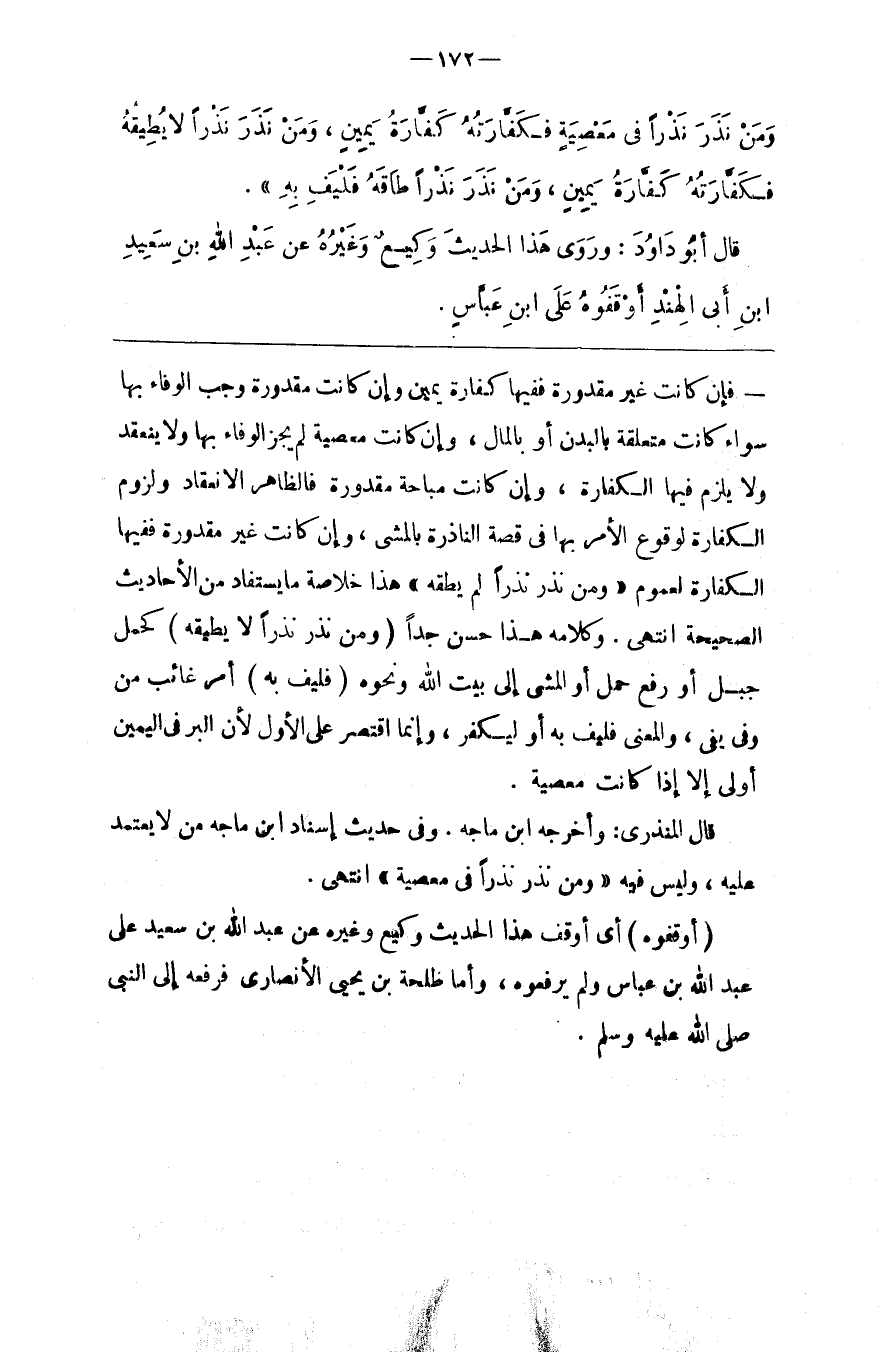 —١٧٢—
وَمَنْ نَذَرَ نَذْراً فى مَعْصِيَةٍ فَـكَفَّارَتُهُ كَـفَّارَةُ يَمِينٍ ، وَمَنْ نَذَرَ نَذْراً لا يُطِيقُهُ
فَـكَفَّارَتُهُ كَـفَّارَةُ يَمِينٍ ، وَمَنْ نَذَرَ نَذْراً طَاقَهُ فَلْيَفِ بِهِ » .
قال أبُو دَاوُدَ : ورَوَى هَذا الحديثَ وَكِيـعٌ وَغَيْرُهُ عن عَبْدِ اللهِ بنِ سَعِيدِ
ابنِ أَبى الْهِنْدِ أَوْقَفُوهُ عَلَى ابنِ عَبَّاسٍ .
— فإن كانت غير مقدورة ففيها كـفارة يمين وإن كانت مقدورة وجب الوفاء بها
سواء كانت متعلقة بالبدن أو بالمال ، وإن كانت معصية لم يجز الوفاء بها ولا ينعقد
ولا يلزم فيها الـكفارة ، وإن كانت مباحة مقدورة فالظاهر الانعقاد ولزوم
الـكفارة لوقوع الأمر بها فى قصة الناذرة بالمشى ، وإن كانت غير مقدورة ففيها
الـكفارة لعموم « ومن نذر نذراً لم يطقه » هذا خلاصة ما يستفاد من الأحاديث
الصحيحة انتهى . وكلامه هـذا حسن جداً ( ومن نذر نذراً لا يطيقه ) كحمل
جبـل أو رفع حمل أو المشى إلى بيت الله ونحوه ( فليف به ) أمر غائب من
وفى يفى ، والمعنى فليف به أو ليـكفر ، وإنما اقتصر على الأول لأن البر فى اليمين
أولى إلا إذا كانت معصية .
قال المنذرى : وأخرجه ابن ماجه . وفى حديث إسناد ابن ماجه من لا يعتمد
عليه ، وليس فيه « ومن نذر نذراً فى معصية » انتهى .
( أوقفوه ) أى أوقف هذا الحديث وكيع وغيره عن عبد الله بن سعيد على
عبد الله بن عباس ولم يرفعوه ، وأما طلحة بن يحيى الأنصارى فرفعه إلى النبى
صلى الله عليه وسلم .